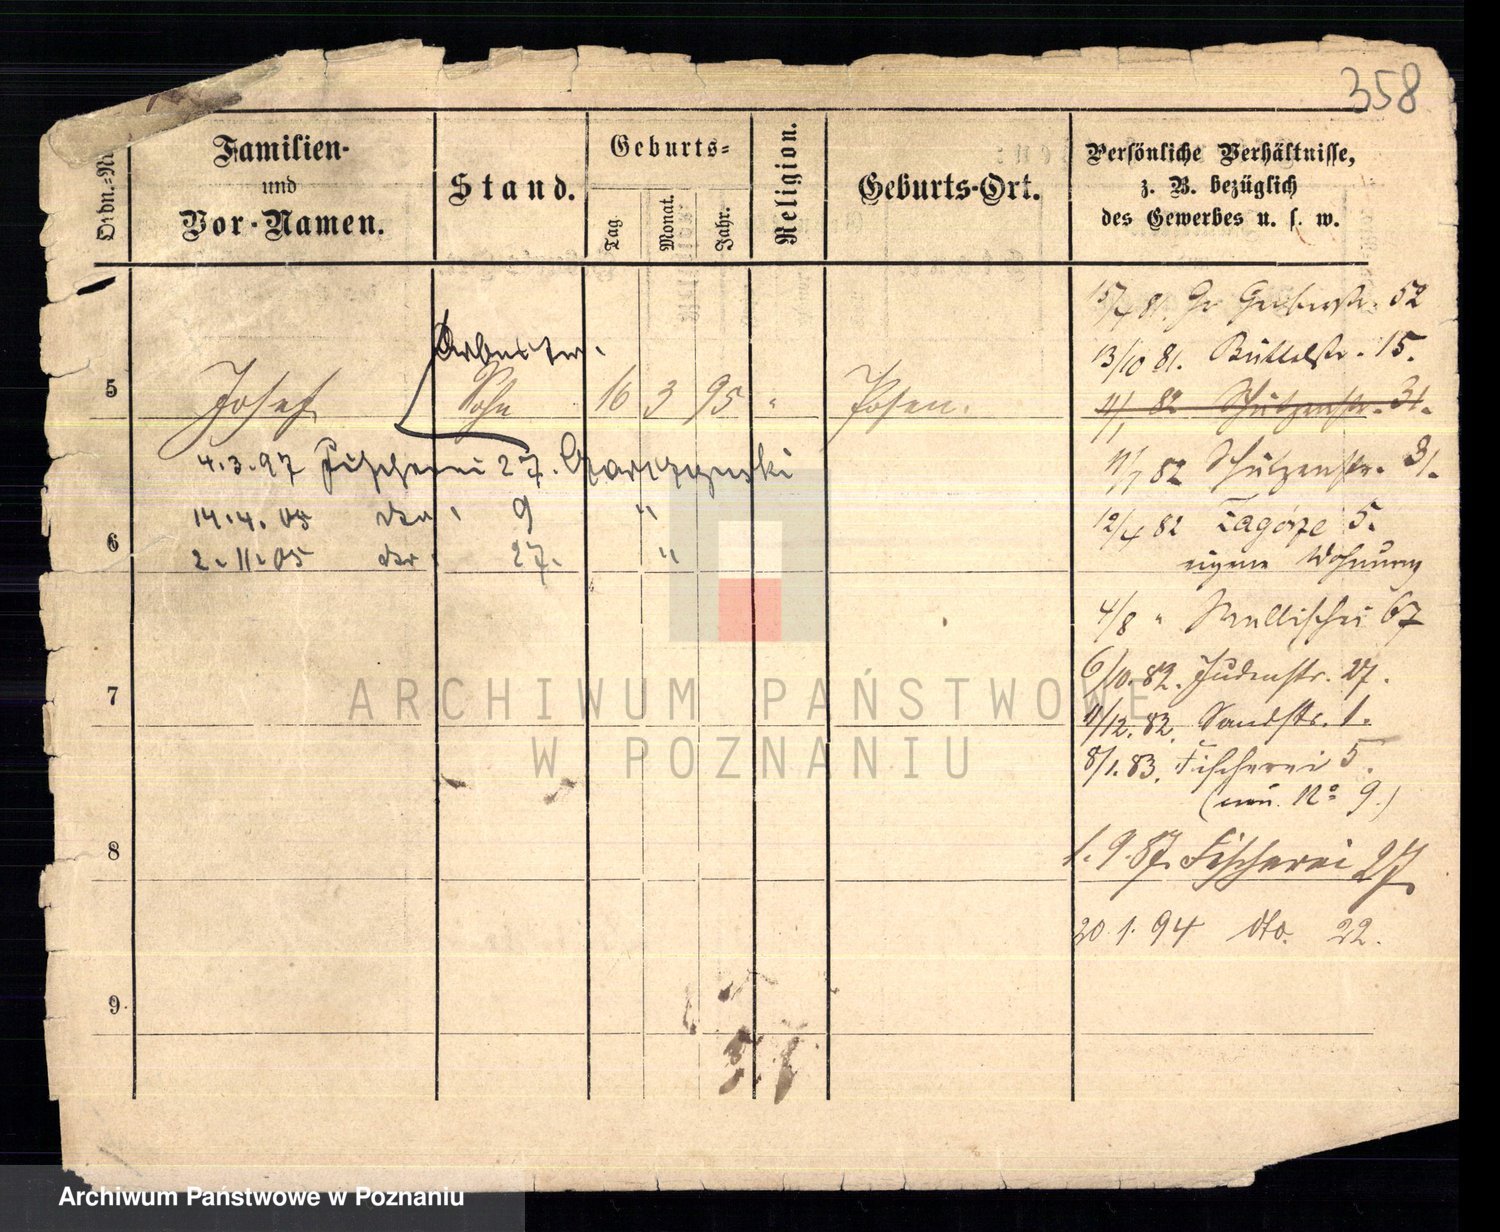 358
Ordn.-Nr.
Familien-
und
Vor-Namen.
Stand.
Geburts-
Tag.
Monat.
Jahr.
Religion.
Geburts-Ort.
Persönliche Verhältnisse,
z. B. bezüglich
des Gewerbes u. s. w.
15/4 81. Gr Gerberstr. 52
13/10 81. Büttelstr. 15.
Arbeiter.
5 Josef Sohn 16 3 95 " Posen.
11/1 82 Schützenstr. 31.
4.3.97 Fischerei 27.
11/1 82 Schützenstr. 31.
14.4.05 do. 9 "
12/4 82 Zagórze 5.
6
2.11.05 do. 27. "
eigene Wohnung
4/8 " Wallischei 67
6/10.82. Judenstr. 27.
7
11/12.82. Sandstr. 1.
8/1.83. Fischerei 5.
(neu. No 9.)
8
1.9.87. Fischerei 27
20.1.94 dto. 22.
9.
ARCHIWUM PAŃSTWOWE
W POZNANIU
Archiwum Państwowe w Poznaniu